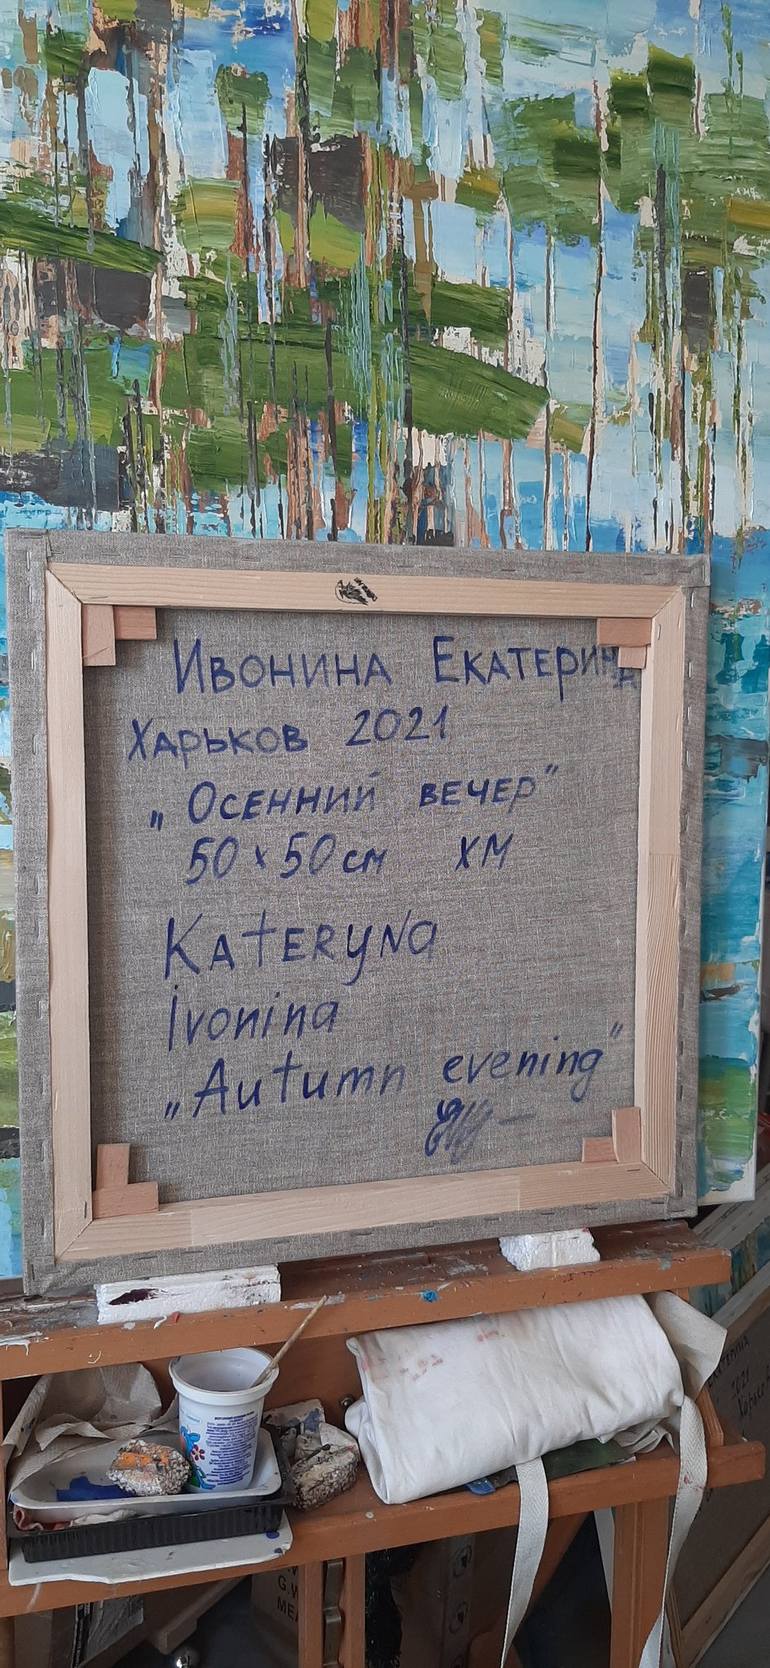 Ивонина Екатерина
Харьков 2021
„Осенний вечер"
50 x 50 см ХМ
Kateryna
Ivonina
„Autumn evening"
2021